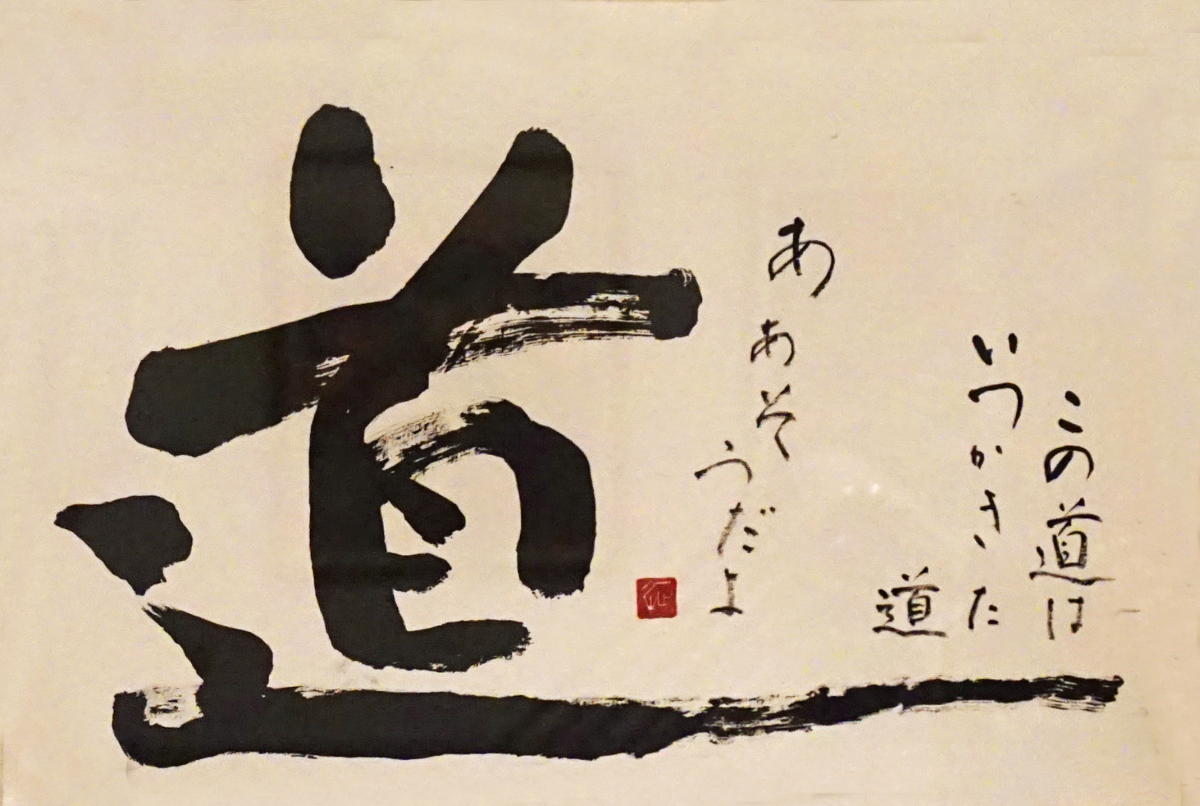 この道は
いつかきた
道
ああそうだよ
道